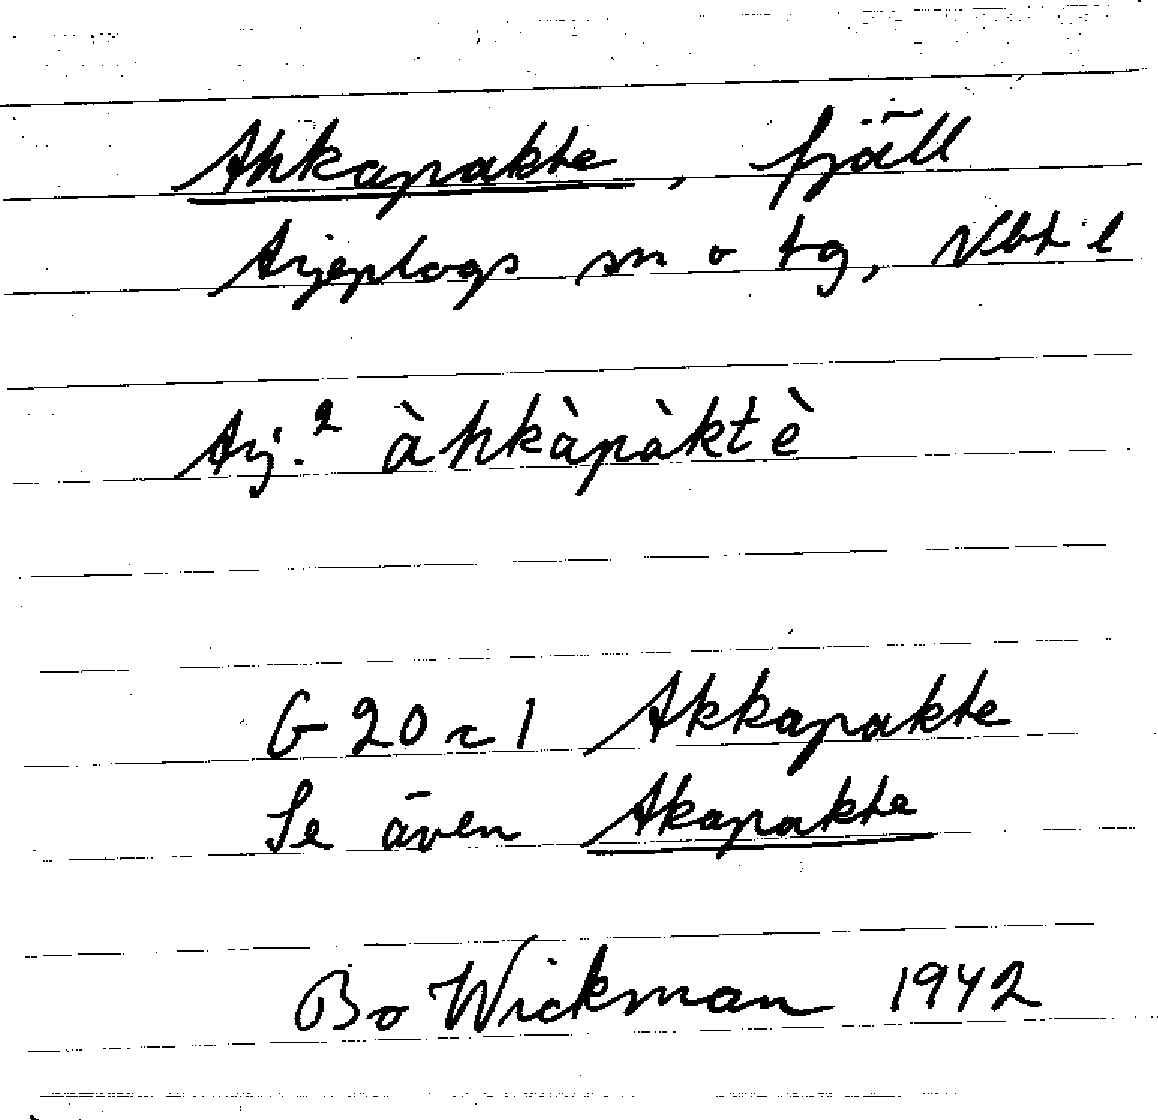 Ahkapakte, fjäll
Arjeplogs sn o tg, Vbt l
Arj.² àhkàpàktè
G 20 c 1 Akkapakte
Se även Akapakte
Bo Wickman 1942